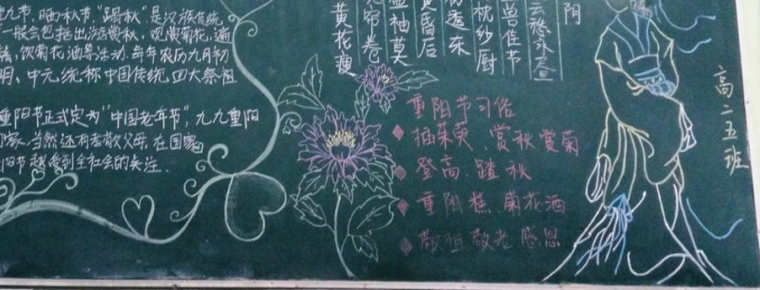 九节,晒秋节,“踏秋”是汉族传统
一般会包括出游赏秋、观赏菊花、遍
糕、饮菊花酒等活动.每年农历九月初
明、中元,统称中国传统四大祭祖
重阳节正式定为“中国老年节”,九九重阳
当然还有孝敬父母.在国家
阳节越受到全社会的关注.
阴
云愁永昼
兽佳节
枕纱厨
透东
黄昏后
盈袖莫
帘卷
黄花瘦
重阳节习俗
插茱萸、赏秋赏菊
登高、踏秋
重阳糕、菊花酒
敬祖敬老感恩
高二五班